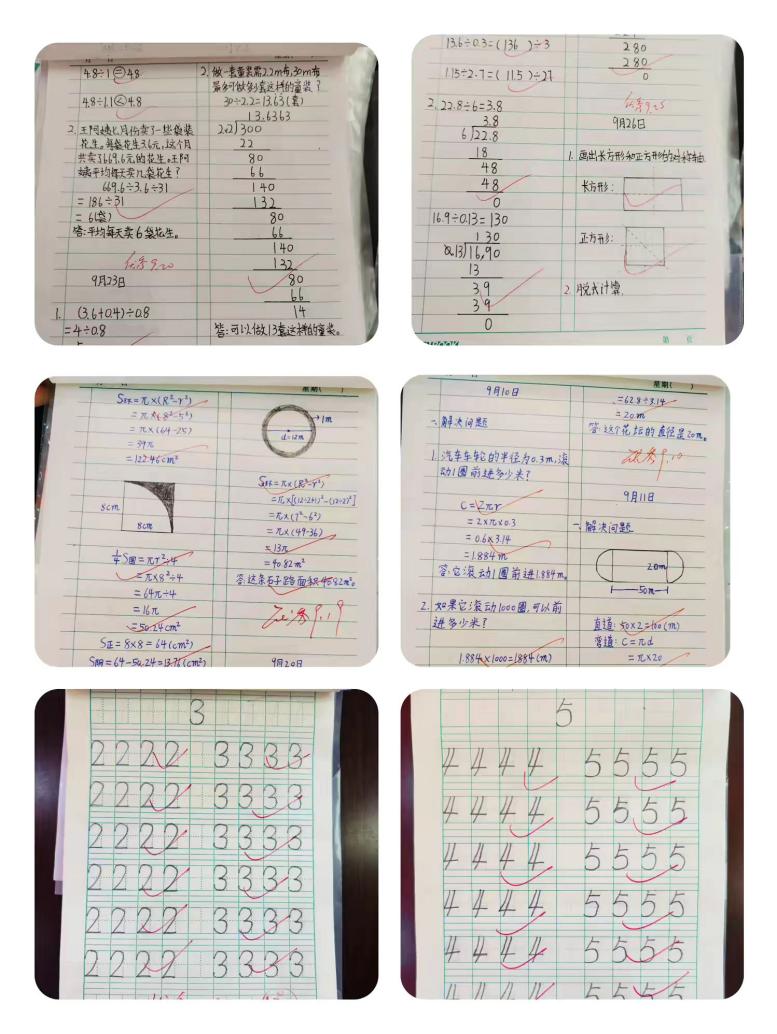 4.8÷1=4.8
4.8÷1.1<4.8
2. 王阿姨七月份卖了一些袋装
花生。每袋花生3.6元,这个月
共卖了669.6元的花生。王阿
姨平均每天卖几袋花生?
669.6÷3.6÷31
=186÷31
=6(袋)
答:平均每天卖6袋花生。
9.20
9月23日
1. (3.6+0.4)÷0.8
=4÷0.8
2. 做一套童装需2.2m布,30m布
最多可做多少套这样的童装?
30÷2.2≈13.63(套)
13.6363
2.2)300
22
80
66
140
132
80
66
140
132
80
66
14
答:可以做13套这样的童装。
13.6÷0.3=(136)÷3
1.15÷2.7=(11.5)÷27
2. 22.8÷6=3.8
3.8
6)22.8
18
48
48
0
16.9÷0.13=130
130
0.13)16.90
13
39
39
0
280
280
0
9.25
9月26日
1. 画出长方形和正方形的对称轴.
长方形:
正方形:
2. 脱式计算.
星期( )
S环=π×(R²-r²)
=π×(8²-5²)
=π×(64-25)
=39π
=122.46cm²
8cm
8cm
¼S圆=πr²÷4
=π×8²÷4
=64π÷4
=16π
=50.24cm²
S正=8×8=64(cm²)
S阴=64-50.24=13.76(cm²)
1m
d=12m
S环=π×(R²-r²)
=π×[(12÷2+1)²-(12÷2)²]
=π×(7²-6²)
=π×(49-36)
=13π
=40.82m²
答:这条石子路面积40.82m².
9.19
9月20日
星期( )
9月10日
一.解决问题
1. 汽车车轮的半径为0.3m,滚
动1圈前进多少米?
C=2πr
=2×π×0.3
=0.6×3.14
=1.884m
答:它滚动1圈前进1.884m。
2. 如果它滚动1000圈,可以前
进多少米?
1.884×1000=1884(m)
=62.8÷3.14
=20m
答:这个花坛的直径是20m。
9.10
9月11日
一.解决问题
20m
50m
直道:50×2=100(m)
弯道:C=πd
=π×20
3
2 2 2 2 3 3 3 3
2 2 2 2 3 3 3 3
2 2 2 2 3 3 3 3
2 2 2 2 3 3 3 3
2 2 2 2 3 3 3 3
2 2 2 2 3 3 3 3
5
4 4 4 4 5 5 5 5
4 4 4 4 5 5 5 5
4 4 4 4 5 5 5 5
4 4 4 4 5 5 5 5
4 4 4 4 5 5 5 5
4 4 4 4 5 5 5 5